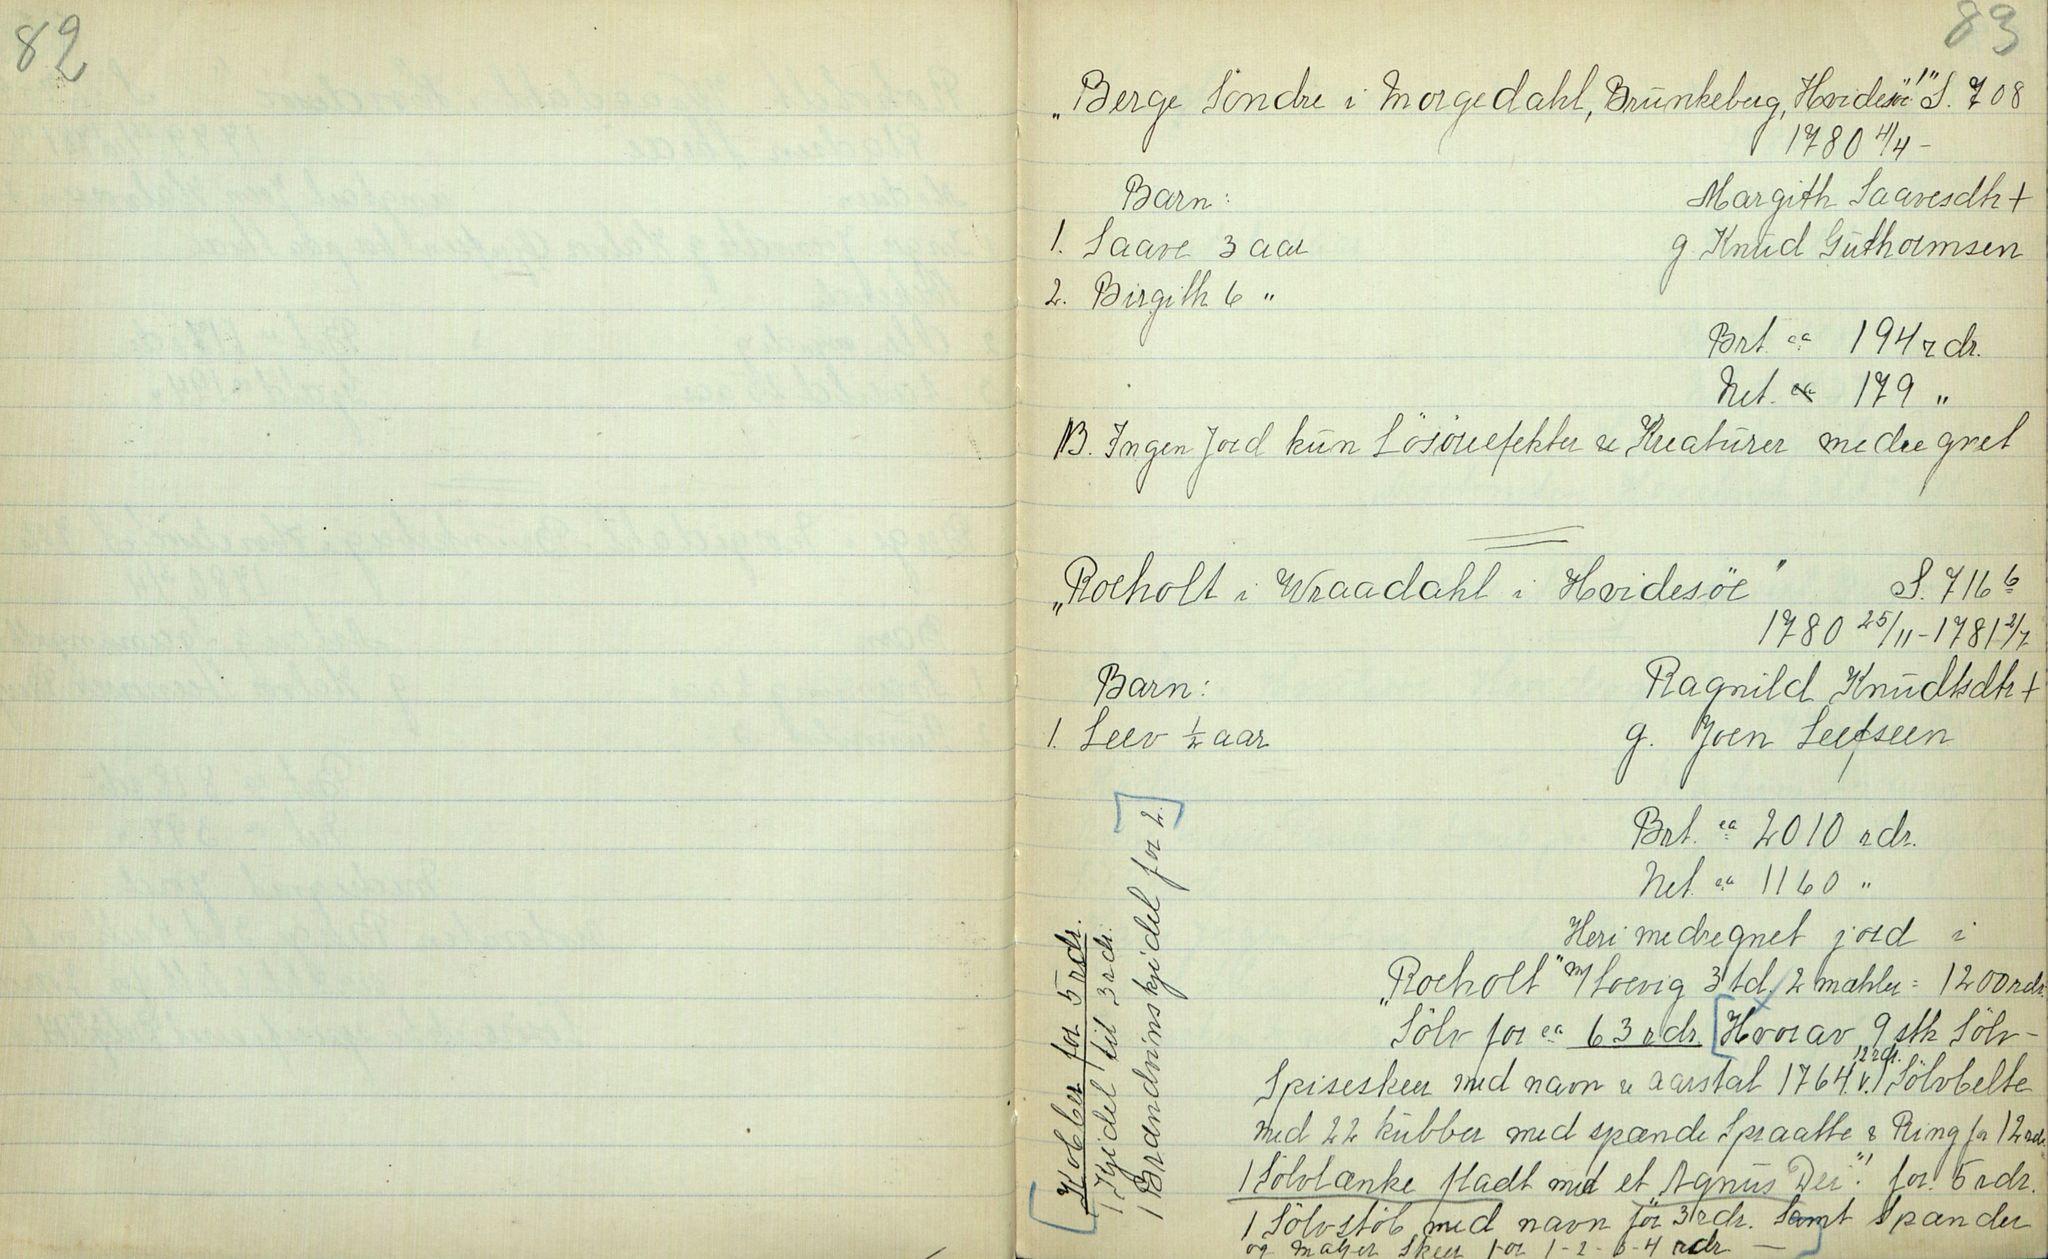 82
83
"Berge Söndre i Morgedahl, Brunkeberg, Hvidesöe" S. 708
1780 4/4 -
Barn:
Margith Saavesdtr +
1. Saave 3 aar
g. Knud Guthormsen
2. Birgith 6 "
Brt. ca 194 rdr.
Net. ca 179 "
NB. Ingen jord kun Lösöreefekter & Kreaturer medregnet
"Roeholt i Wraadahl i Hvidesöe" S. 716 b
1780 25/11 - 1781 2/7
Barn:
Ragnild Knudtsdtr +
1. Leev ½ aar
g. Joen Leefseen
Brt. ca 2010 rdr.
Net. ca 1160 "
Heri medregnet jord i
"Roeholt" m/ Loevig 3 td. 2 mæhler = 1200 rdr.
Sölv for ca 63 rdr. [Hvorav 9 stk Sölv-
Spiseskeer med navn & aarstal 1764 v. 12 rdr. 1 Sölvbelte
med 22 kubber med spænde Spraatte & Ring for 12 rdr.
1 Sölvlænke fladt med et "Agnus Dei" for 5 rdr.
1 Sölvstöb med navn for 3 rdr. Samt Spænder
og Maljer Skeer for 1-2-3-4 rdr. —]
[Kobber for 5 rdr.
1 Kjedel til 3 rdr.
1 Brændvinskjedel for 2.]